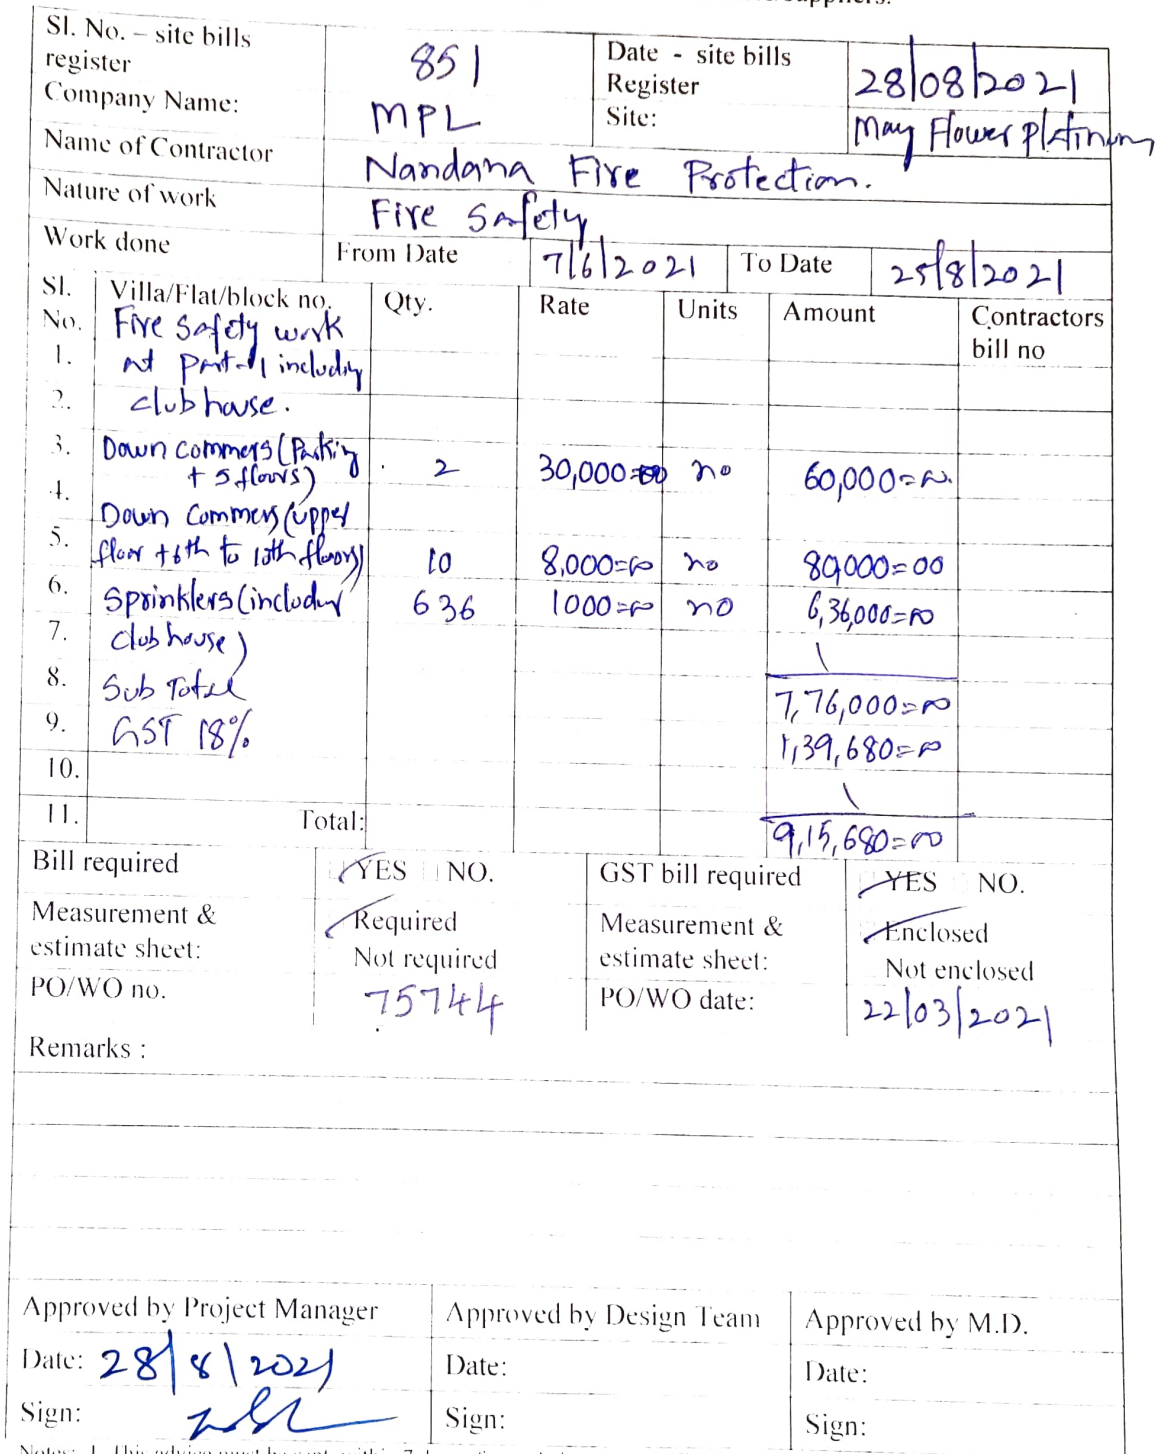 Sl. No. – site bills register 851 Date - site bills Register 28/08/2021
Company Name: MPL Site: May Flower Platinum
Name of Contractor Nandana Fire Protection.
Nature of work Fire Safety
Work done From Date 7/6/2021 To Date 25/8/2021
Sl. No. Villa/Flat/block no. Qty. Rate Units Amount Contractors bill no
Fire Safety work
1. at Part-1 including
2. club house.
3. Down commers (Parking
+ 5 floors) 2 30,000=00 no 60,000=00.
4.
Down Commers (upper
5. floor + 6th to 10th floors) 10 8,000=00 no 80,000=00
6. Sprinklers (including 636 1000=00 no 6,36,000=00
7. club house)
8. Sub Total 7,76,000=00
9. GST 18% 1,39,680=00
10.
11. Total: 9,15,680=00
Bill required YES NO. GST bill required YES NO.
Measurement & estimate sheet: Required Not required Measurement & estimate sheet: Enclosed Not enclosed
PO/WO no. 75744 PO/WO date: 22/03/2021
Remarks :
Approved by Project Manager Approved by Design Team Approved by M.D.
Date: 28/8/2021 Date: Date:
Sign: Sign: Sign: